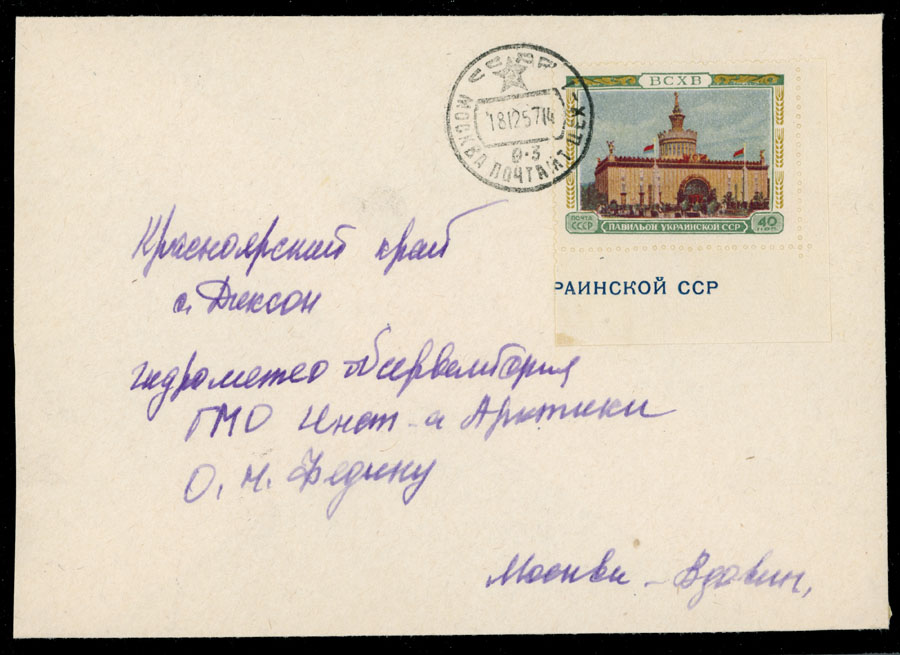 СССР
МОСКВА ПОЧТАМТ ЦЕХ
18 12 57 14
0-3
ВСХВ
ПОЧТА СССР
ПАВИЛЬОН УКРАИНСКОЙ ССР
40 коп
РАИНСКОЙ ССР
Красноярский край
о. Диксон
гидрометео обсерватория
ГМО Инст-а Арктики
О. Н. Федину
Москва - Вдовин,